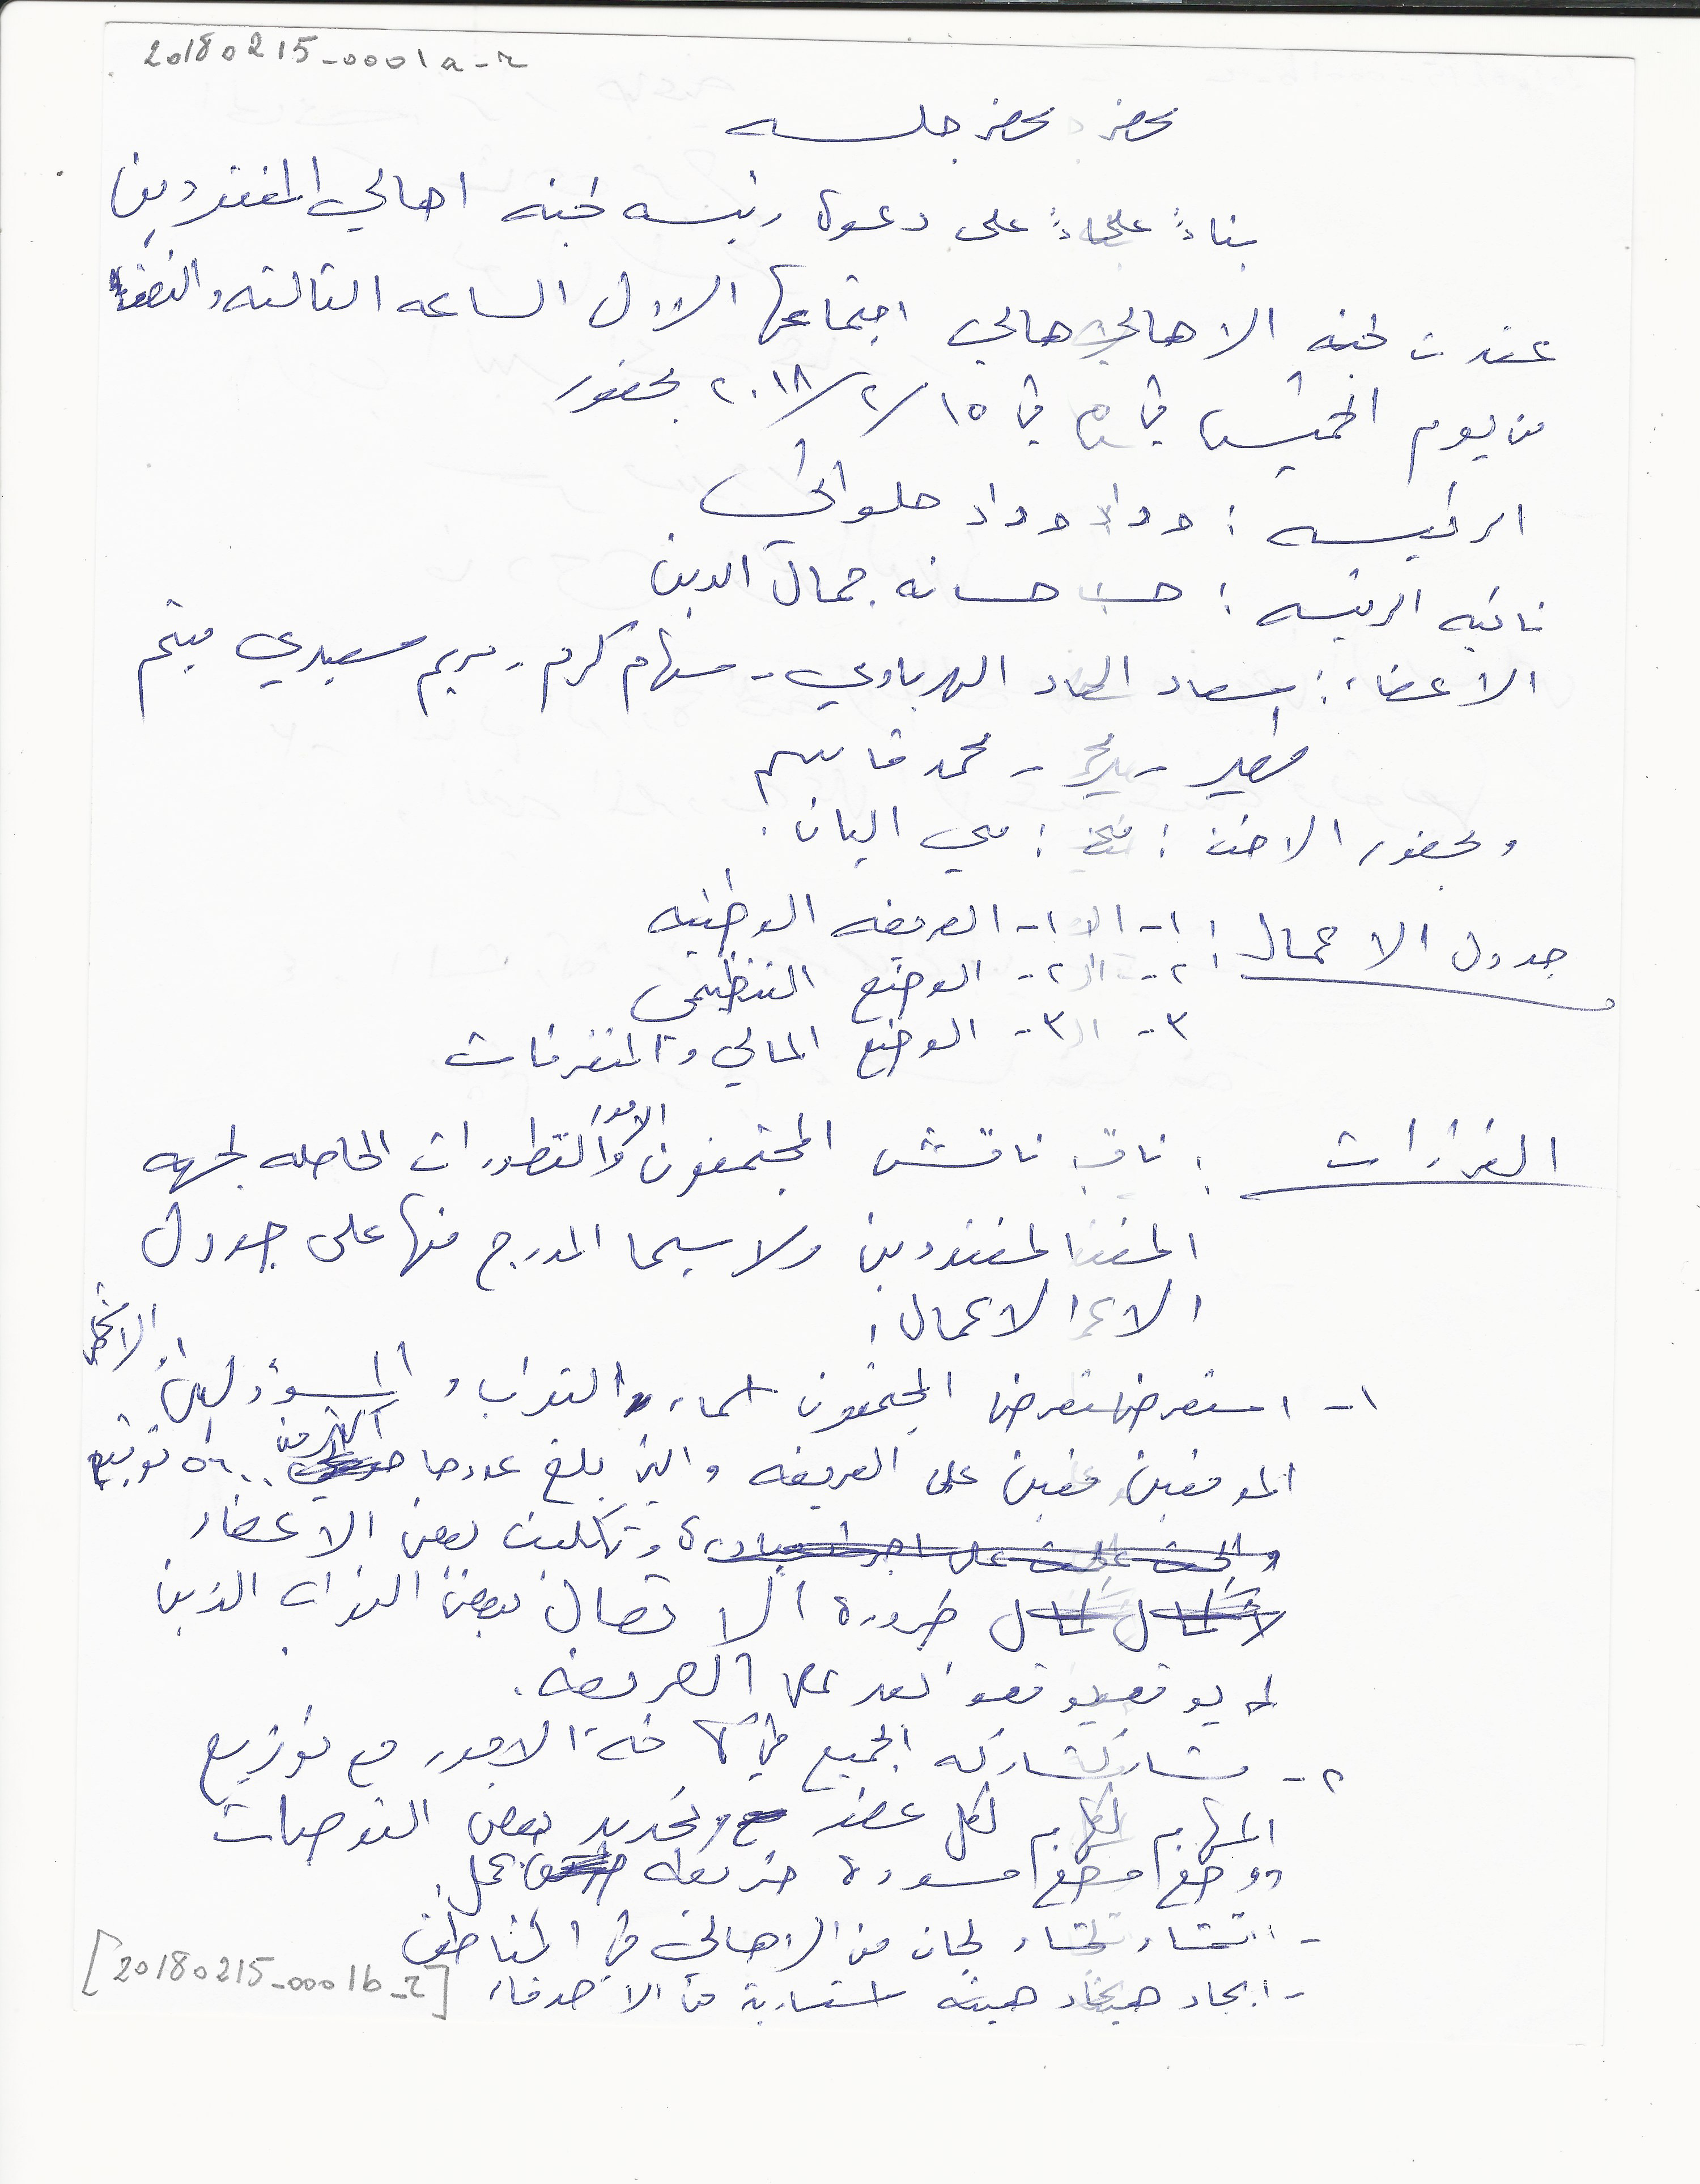 20180215-0001a-r
محضر محضر جلسه
بناءً على دعوة رئيسه لجنه اهالي المفقودين
عقدت لجنه الاهالي اجتماعها الاول الساعه الثالثه والنصف
من يوم الخميس في ١٥/٢/٢٠١٨ بحضور
الرئيسه : وداد حلواني
نائبه الرئيسه : حسانه جمال الدين
الاعضاء : سعاد الهرباوي - سهام كرم - مريم سعيدي
- محمد قاسم
وبحضور الاخت : مي
جدول الاعمال : ١- العريضه الوطنيه
٢- الوضع التنظيمي
٣- الوضع المالي والمتفرقات
القرارات : ناقش المجتمعون الامور والتطورات الحاصله لجهه
المفقودين ولا سيما المدرج منها على جدول
الاعمال :
١- استعرض المجتمعون اسماء النواب والمسؤولين
الموقعين على العريضه والتي بلغ عددها اكثر من ٥٦٠٠ توقيع
وتكليف بعض الاعضاء
ضرورة الاتصال ببعض النواب الذين
لم يوقعوا بعد على العريضه .
٢- مشاركه الجميع في كافة الامور مع توزيع
المهام لكل عضو وتحديد بعض التوصيات
ووضع مسودة خريطه عمل .
- انشاء لجان من الاهالي في المناطق
- ايجاد هيئه استشارية من الاصدقاء
[20180215-0001b-r]